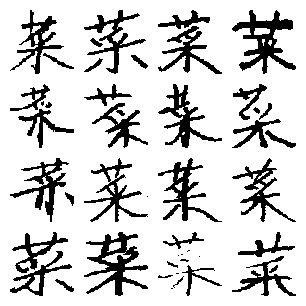 菜菜菜菜
菜菜菜菜
菜菜菜菜
菜菜菜菜